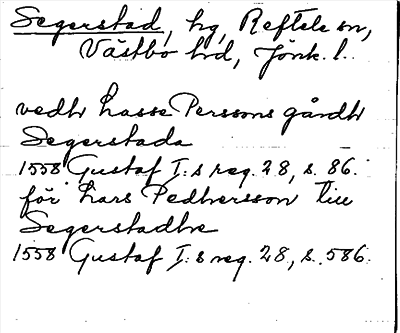 Segerstad, hg, Reftele sn,
Västbo hd, Jönk. l.
vedh Lasse Perssons gårdh
Segerstada
1558 Gustaf I:s reg. 28, s. 86.
för Lars Pedhersson till
Segerstadhe
1558 Gustaf I:s reg. 28, s. 586.